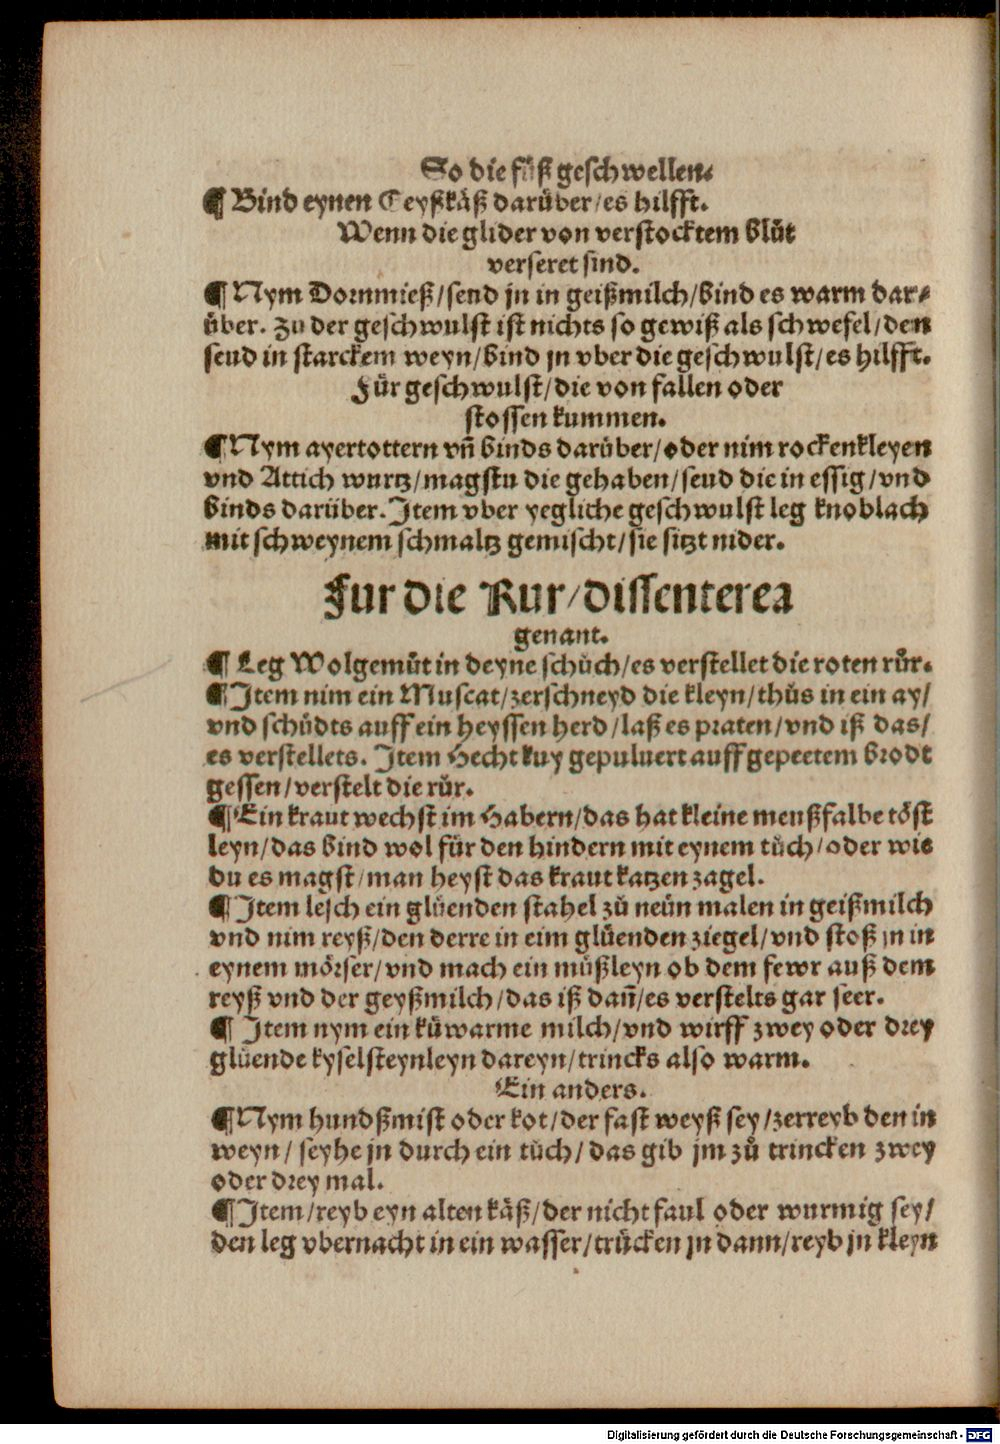 So die fůß geschwellen.
¶ Bind eynen Geyßkäß darüber/es hilfft.
Wenn die glider von verstocktem blůt
verseret sind.
¶ Nym Dornmieß/send jn in geißmilch/bind es warm dar⸗
über. Zu der geschwulst ist nichts so gewiß als schwefel/den
seud in starckem weyn/bind jn vber die geschwulst/es hilfft.
Für geschwulst/die von fallen oder
stossen kummen.
¶ Nym ayertottern vn̄ binds darüber/oder nim rockenkleyen
vnd Attich wurtz/magstu die gehaben/seud die in essig/vnd
binds darüber. Item vber yegliche geschwulst leg knoblach
mit schweynem schmaltz gemischt/sie sitzt nider.
Fur die Rur/dissenterea
genant.
¶ Leg Wolgemůt in deyne schůch/es verstellet die roten růr.
¶ Item nim ein Muscat/zerschneyd die kleyn/thůs in ein ay/
vnd schüdts auff ein heyssen herd/laß es praten/vnd iß das/
es verstellets. Item Hecht kuy gepuluert auff gepeetem brodt
gessen/verstelt die růr.
¶ Ein kraut wechst im Habern/das hat kleine meußfalbe töst
leyn/das bind wol für den hindern mit eynem tůch/oder wie
du es magst/man heyst das kraut katzen zagel.
¶ Item lesch ein glüenden stahel zů neün malen in geißmilch
vnd nim reyß/den derre in eim glüenden ziegel/vnd stoß jn in
eynem mörser/vnd mach ein můßleyn ob dem fewr auß dem
reyß vnd der geyßmilch/das iß dan̄/es verstelts gar seer.
¶ Item nym ein küwarme milch/vnd wirff zwey oder drey
glüende kyselsteynleyn dareyn/trincks also warm.
Ein anders.
¶ Nym hundßmist oder kot/der fast weyß sey/zerreyb den in
weyn/ seyhe jn durch ein tůch/ das gib jm zů trincken zwey
oder drey mal.
¶ Item/reyb eyn alten käß/der nicht faul oder wurmig sey/
den leg vbernacht in ein wasser/trücken jn dann/reyb jn kleyn
Digitalisierung gefördert durch die Deutsche Forschungsgemeinschaft - DFG